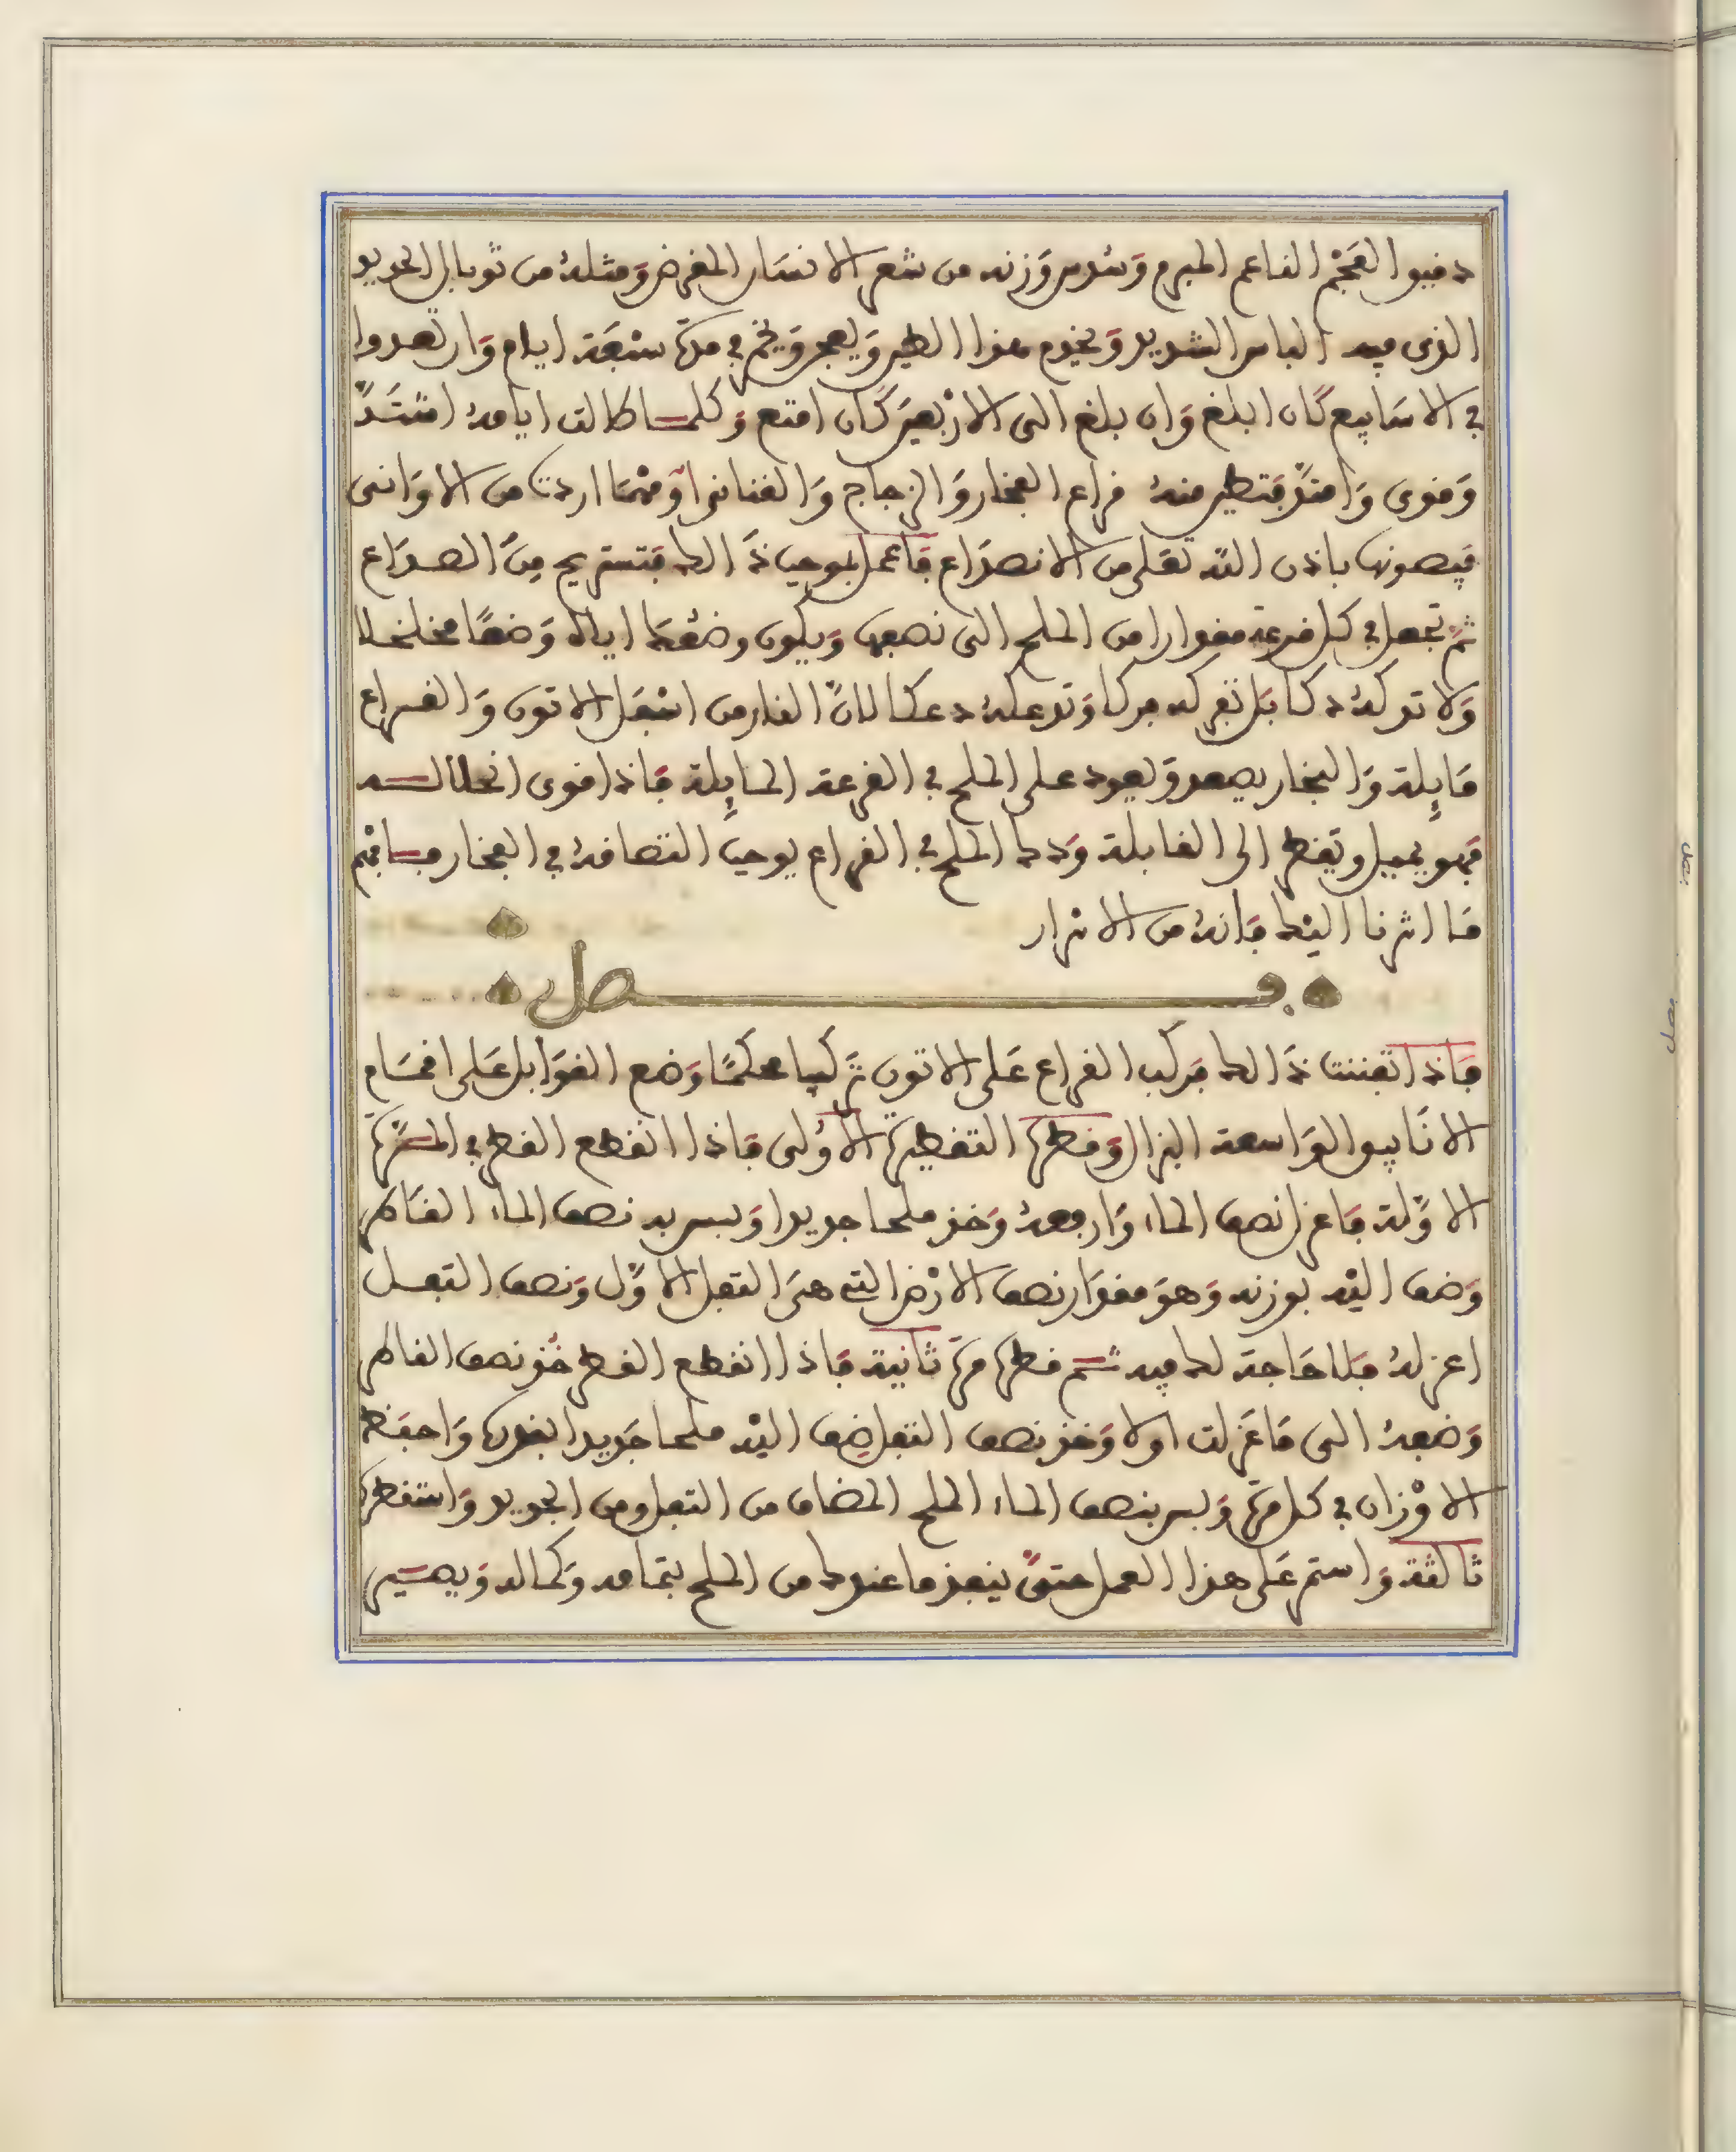 دقيق الفحم الناعم المبرم وسدس وزنه من شعر الانسان المقرض ومثله من توبال الحديد
الذي فيه الباس الشديد ويخدم هذا الطين ويعجن ويخمر في مدة سبعة ايام وان تعدوا
في الاسابيع كان ابلغ وان بلغ الى الاربعين كان امتع وكلما طالت ايامه اشتد
وقوى وامتد فتطين منه قراع الفخار والزجاج والقناني او مهما اردت من الاواني
فيصونها باذن الله تعلى من الانصداع فاعمل بموجب ذلك فتستريح من الصداع
ثم تجعل في كل قرعة مقدارا من الملح الى نصفها ويكون وضعك اياه وضعا مخلخلا
ولا تدكه دكا بل تفركه فركا وتدعكه دعكا لان النار من اسفل الاتون والقراع
مايلة والبخار يصعد ويعود على الملح في القرعة المايلة فاذا قوى انحلاله
فهو يميل ويقطر الى القابلة ودك الملح في القراع يوجب التصاقه في الفخار فافهم
ما اشرنا اليك فانه من الاسرار
فصل
فاذا اتقنت ذلك فركب القراع على الاتون تركيبا محكما وضع القوابل على اقسام
الانابيق الواسعة البزال وقطرها التقطيرة الاولى فاذا انقطع القطر في المرة
الاولة فاعزل نصف الماء وارفعه وخذ ملحا جديدا وبسس به نصف الماء القاطر
وضف اليه بوزنه وهو مقدار نصف الارض التي هي الثفل الاول ونصف الثفل
اعزله فلا حاجة لك فيه ثم قطرها مرة ثانية فاذا انقطع القطر خذ نصف القاطر
وضفه الى ما عزلت اولا وخذ نصف الثفل ضف اليه ملحا جديدا بقدرها واحفظ
الاوزان في كل مرة وبسس بنصف الماء الملح المضاف من الثفل ومن الجديد واستقطرها
ثالثة واستمر على هذا العمل حتى ينفذ ما عندك من الملح بتمامه وكماله ويصير